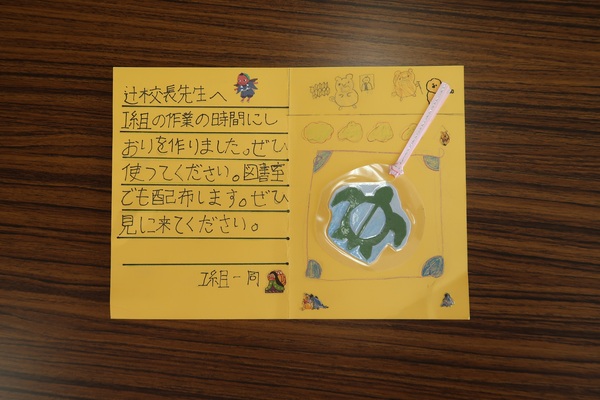 辻校長先生へ
1組の作業の時間にし
おりを作りました。ぜひ
使ってください。図書室
でも配布します。ぜひ
見に来てください。
1組一同